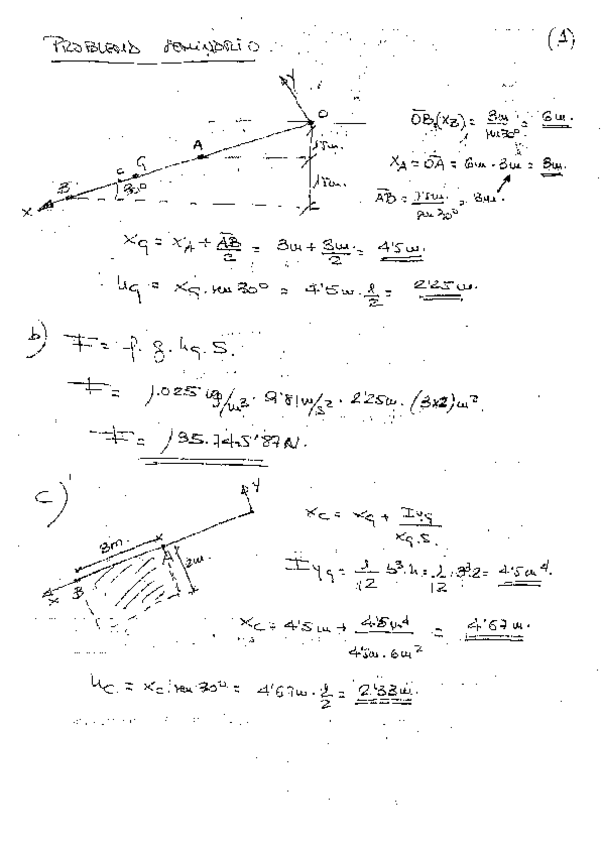 PROBLEMA SEMINARIO
(1)
Y
O
A
G
C
B
30º
X
1'5m.
1'5m.
OB (XB) = 3m / sen30º = 6m.
XA = OA = 6m - 3m = 3m.
AB = 1'5m / sen30º = 3m.
XG = XA + AB/2 = 3m + 3m/2 = 4'5m.
hG = XG . sen 30º = 4'5m . 1/2 = 2'25m.
b) F = ρ. g. hG. S.
F = 1.025 kg/m³ . 9'81m/s² . 2'25m. (3x2)m².
F = 135.745'87N.
c)
Y
3m.
A
2m.
B
X
XC = XG + IyG / XG.S.
IyG = 1/12 b³.h = 1/12 . 3³.2 = 4'5m⁴.
XC = 4'5m + 4'5m⁴ / 4'5m . 6m² = 4'67m.
hC = XC. sen 30º = 4'67m . 1/2 = 2'33m.